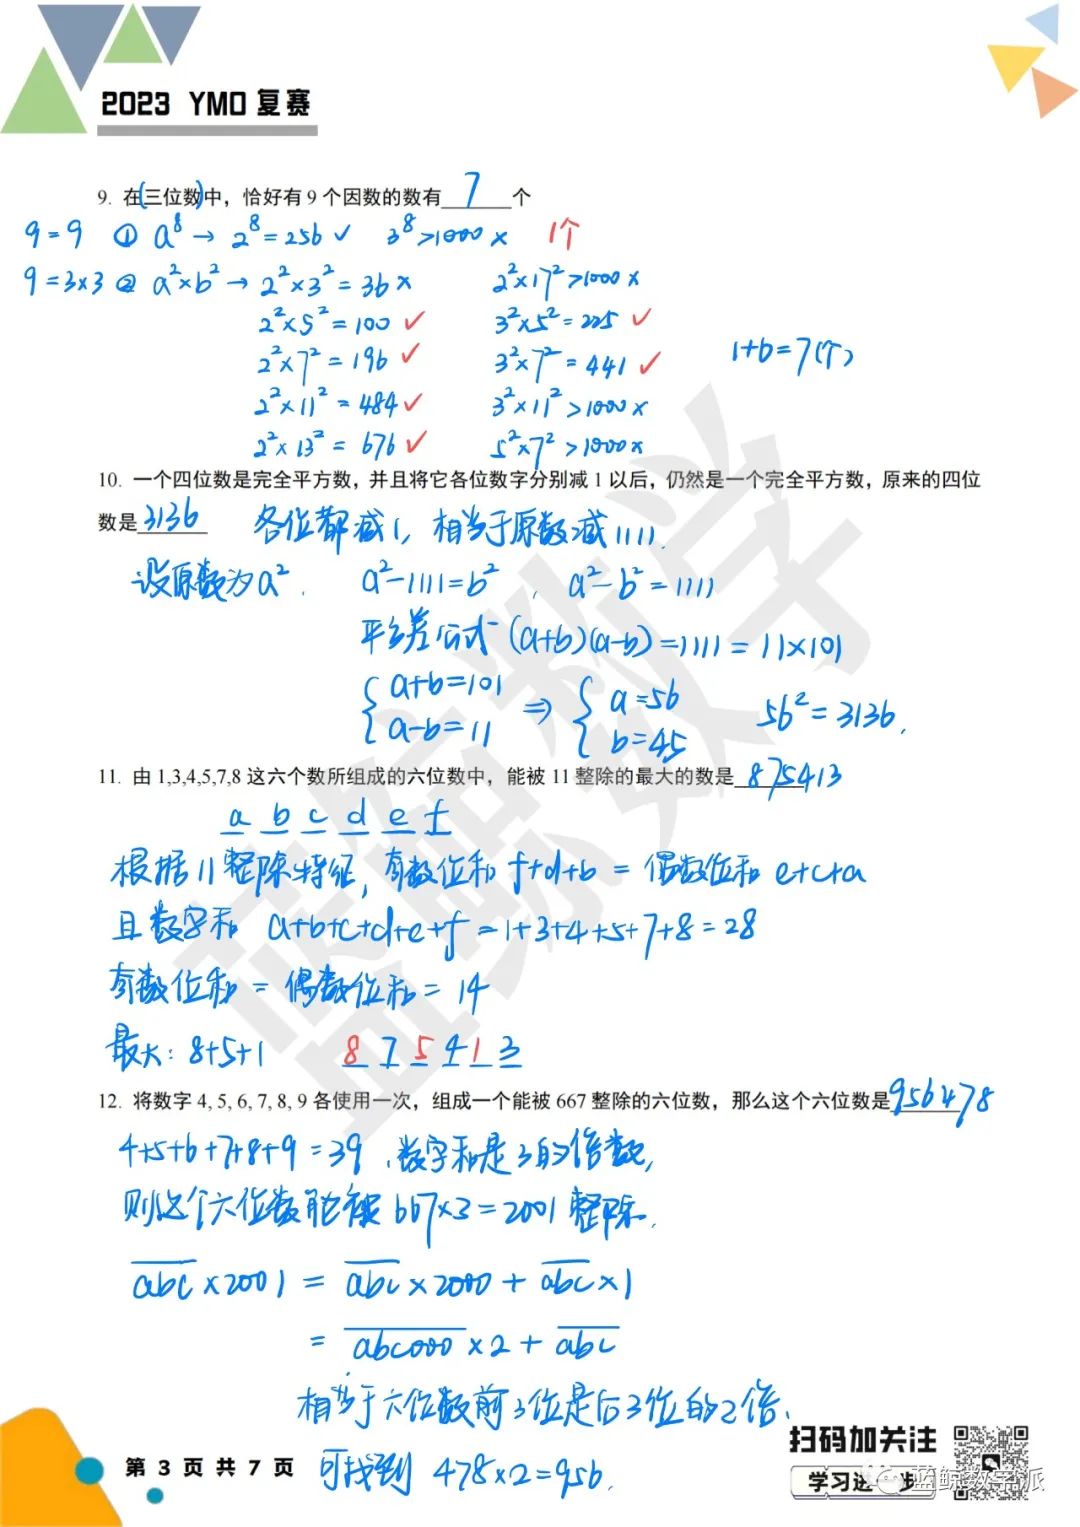 2023 YMO 复赛
9. 在(三位数)中，恰好有 9 个因数的数有 7 个
9=9 ① a⁸ → 2⁸=256 ✓ 3⁸>1000 × 1个
9=3×3 ② a²×b² → 2²×3²=36 × 2²×17²>1000 ×
2²×5²=100 ✓ 3²×5²=225 ✓
2²×7²=196 ✓ 3²×7²=441 ✓ 1+6=7(个)
2²×11²=484 ✓ 3²×11²>1000 ×
2²×13²=676 ✓ 5²×7²>1000 ×
10. 一个四位数是完全平方数，并且将它各位数字分别减 1 以后，仍然是一个完全平方数，原来的四位
数是 3136 各位都减1，相当于原数减1111.
设原数为a². a²-1111=b², a²-b²=1111
平方差公式 (a+b)(a-b)=1111=11×101
{ a+b=101 ⇒ { a=56 56²=3136.
a-b=11 b=45
11. 由 1,3,4,5,7,8 这六个数所组成的六位数中，能被 11 整除的最大的数是 875413
a b c d e f
根据11整除特征，奇数位和 f+d+b = 偶数位和 e+c+a
且数字和 a+b+c+d+e+f=1+3+4+5+7+8=28
奇数位和 = 偶数位和 = 14
最大: 8+5+1 8 7 5 4 1 3
12. 将数字 4, 5, 6, 7, 8, 9 各使用一次，组成一个能被 667 整除的六位数，那么这个六位数是 956478
4+5+6+7+8+9=39, 数字和是3的倍数,
则这个六位数能被 667×3=2001 整除.
abc×2001 = abc×2000 + abc×1
= abc000×2 + abc
相当于六位数前3位是后3位的2倍.
可找到 478×2=956.
第 3 页 共 7 页
扫码加关注
学习进一步
蓝鲸数学派
蓝鲸数学